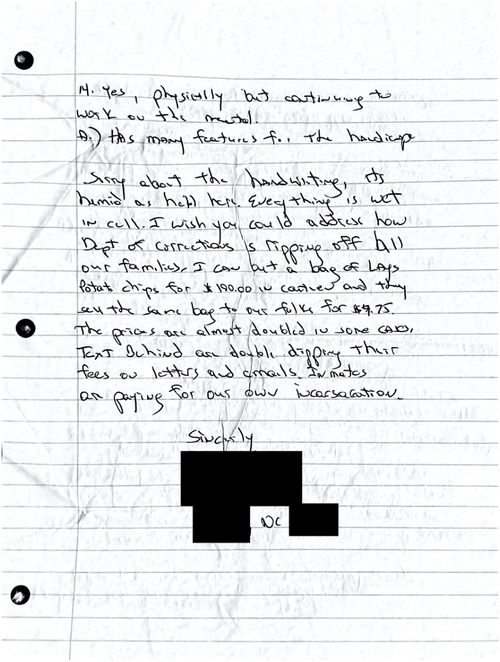 M. Yes, physically but continuing to
work on the mental.
A.) Has many features for the handicap
Sorry about the handwriting, its
humid as hell here. Everything is wet
in cell. I wish you could address how
Dept of corrections is ripping off all
our families. I can but a bag of Lays
Potato chips for $ in canteen and they
sell the same bag to our folks for $9.75.
The prices are almost doubled in some cases.
Text Behind are double dipping their
fees on letters and emails. Inmates
are paying for our own incarseration.
Sincerly
NC